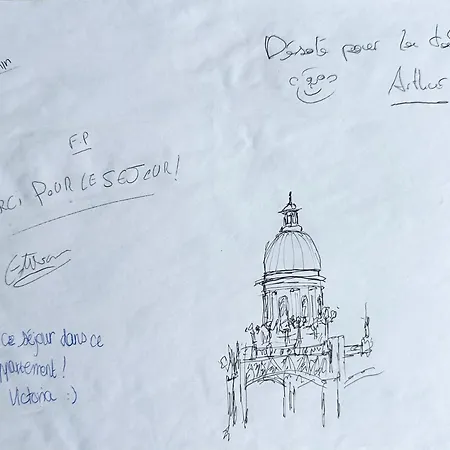 Désolé pour la
Arthur
F.P
RCI POUR LE SEJOUR!
ce séjour dans ce
ppartement!
Victoria :)